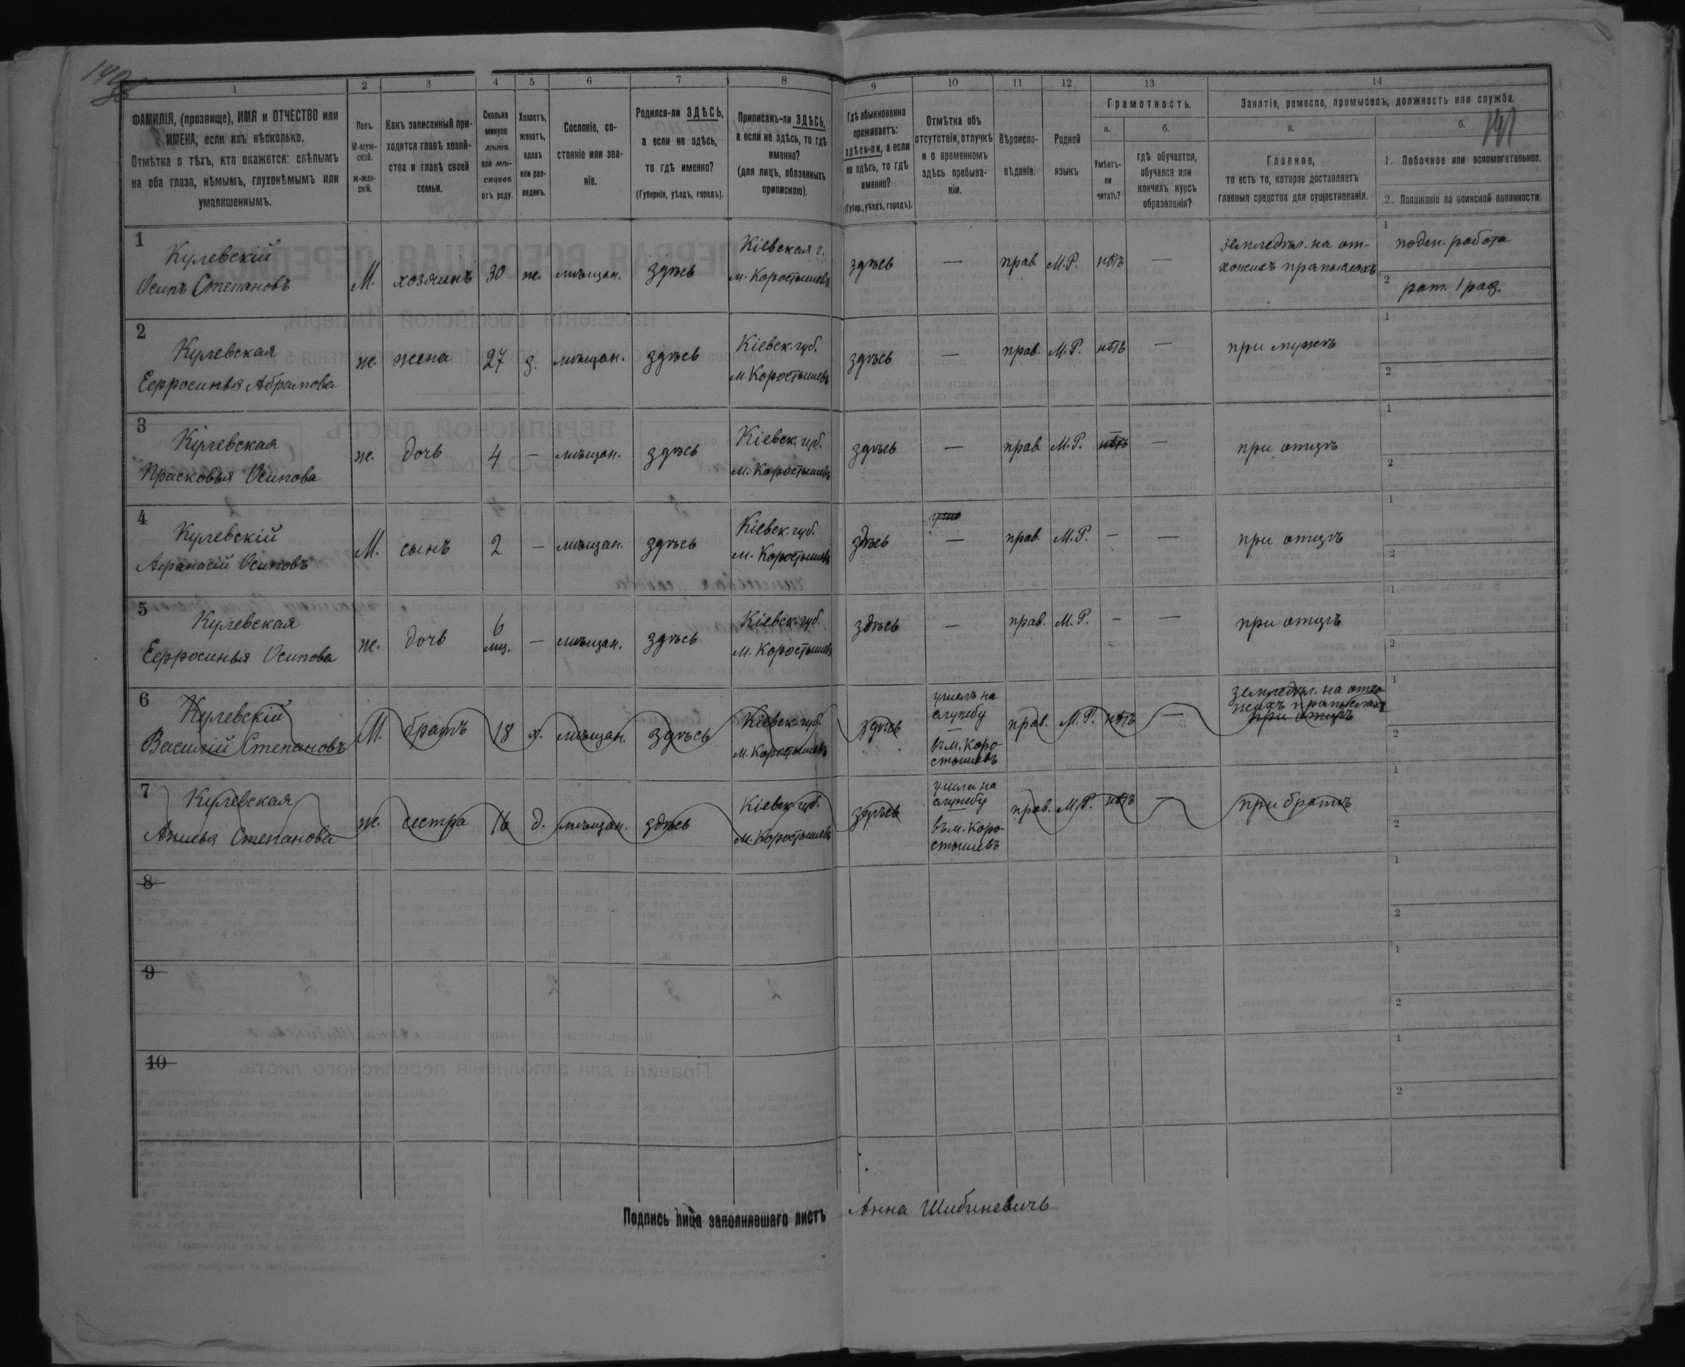 1
2
3
4
5
6
7
8
9
10
11
12
13
14
ФАМИЛІЯ, (прозвище), ИМЯ и ОТЧЕСТВО или
ИМЕНА, если ихъ нѣсколько.
Отмѣтка о тѣхъ, кто окажется: слѣпымъ
на оба глаза, нѣмымъ, глухонѣмымъ или
умалишеннымъ.
Полъ.
М-муж-
ской.
ж-жен-
скій.
Какъ записанный при-
ходится главѣ хозяй-
ства и главѣ своей
семьи.
Сколько
минуло
лѣтъ
или мѣ-
сяцевъ
отъ роду.
Холостъ,
женатъ,
вдовъ
или раз-
веденъ.
Сословіе, со-
стояніе или зва-
ніе.
Родился-ли ЗДѢСЬ,
а если не здѣсь,
то гдѣ именно?
(Губернія, уѣздъ, городъ).
Приписанъ-ли ЗДѢСЬ,
а если не здѣсь, то гдѣ
именно?
(для лицъ, обязанныхъ
припискою).
Гдѣ обыкновенно
проживаетъ:
здѣсь-ли, а если
не здѣсь, то гдѣ
именно?
(Губер., уѣздъ, городъ).
Отмѣтка объ
отсутствіи, отлучкѣ
и о временномъ
здѣсь пребыва-
ніи.
Вѣроиспо-
вѣданіе.
Родной
языкъ
Грамотность.
а.
б.
Умѣетъ-
ли
читать?
гдѣ обучается,
обучался или
кончилъ курсъ
образованія?
Занятіе, ремесло, промыселъ, должность или служба.
141
а.
б.
Главное,
то есть то, которое доставляетъ
главныя средства для существованія.
1. Побочное или вспомогательное.
2. Положеніе по воинской повинности.
1
Кулевскій
Осипъ Степановъ
М. хозяинъ 30 ж. мѣщан. здѣсь
Кіевская г.
м. Коростышевъ
здѣсь — прав. М.Р. нѣтъ —
земледѣл. на от-
хожихъ промыслахъ
1 поден. работа
2 рат. 1 раз.
2
Кулевская
Ефросинья Абрамова
ж. жена 27 з. мѣщан. здѣсь
Кіевск. губ.
м. Коростышевъ
здѣсь — прав. М.Р. нѣтъ — при мужѣ
1
2
3
Кулевская
Прасковья Осипова
ж. дочь 4 — мѣщан. здѣсь
Кіевск. губ.
м. Коростышевъ
здѣсь — прав. М.Р. нѣтъ — при отцѣ
1
2
4
Кулевскій
Афанасій Осиповъ
М. сынъ 2 — мѣщан. здѣсь
Кіевск. губ.
м. Коростышевъ
здѣсь — прав. М.Р. — — при отцѣ
1
2
5
Кулевская
Ефросинья Осипова
ж. дочь 6 мц. — мѣщан. здѣсь
Кіевск. губ.
м. Коростышевъ
здѣсь — прав. М.Р. — — при отцѣ
1
2
6
Кулевскій
Василій Степановъ
М. братъ 18 х. мѣщан. здѣсь
Кіевск. губ.
м. Коростышевъ
здѣсь
ушелъ на
службу
—
въ м. Коро-
стышевъ
прав. М.Р. нѣтъ —
земледѣл. на отхо-
жихъ промыслахъ
при отцѣ
1
2
7
Кулевская
Степанова
ж. сестра 16 д. мѣщан. здѣсь
Кіевск. губ.
м. Коростышевъ
здѣсь
ушла на
службу
въ м. Коро-
стышевъ
прав. М.Р. нѣтъ — при братѣ
1
2
8
1
2
9
1
2
10
1
2
Подпись лица заполнявшаго листъ Анна Шибиневичъ